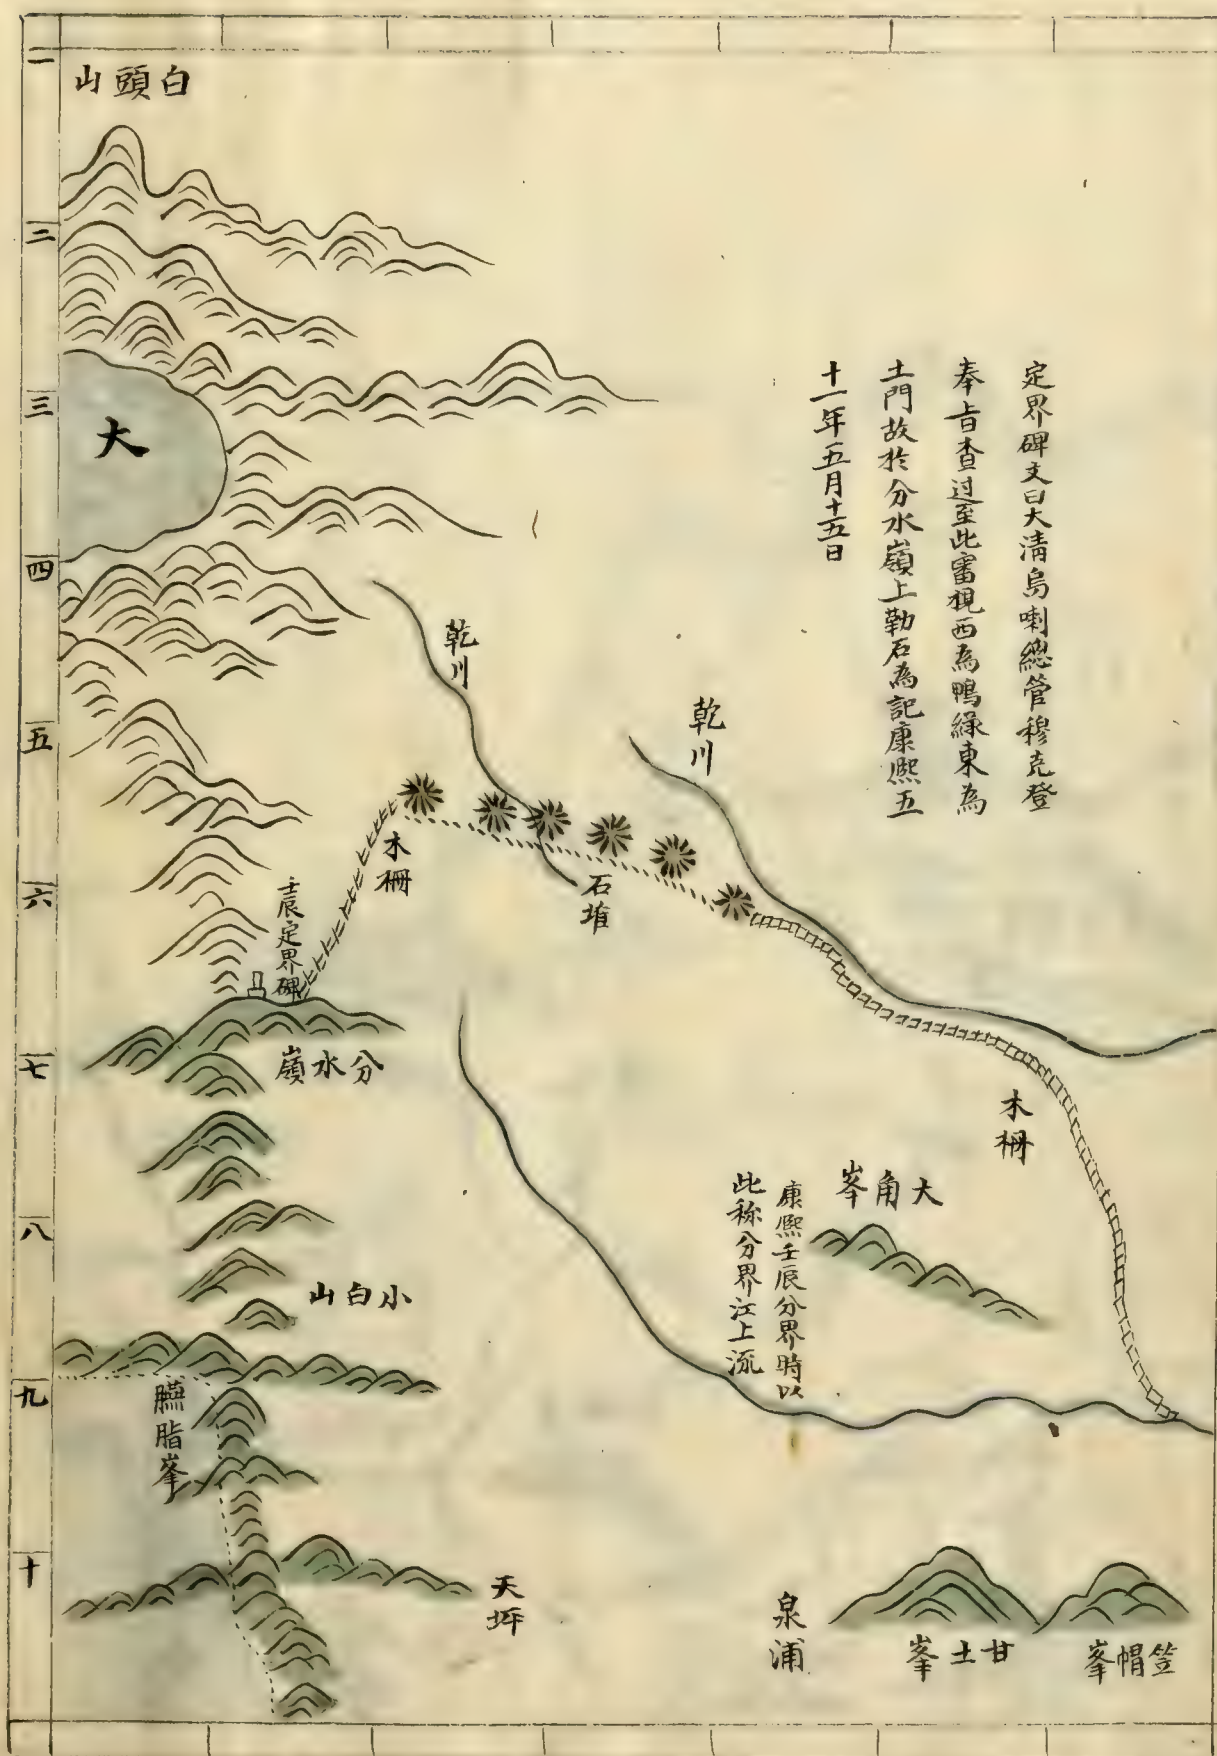 白頭山
大
定界碑文曰大淸烏喇總管穆克登
奉旨査过至此審視西為鴨緑東為
土門故於分水嶺上勒石為記康熙五
十一年五月十五日
乾川
乾川
木柵
石堆
壬辰定界碑
分水嶺
木柵
大角峯
康熙壬辰分界時以
此称分界江上流
小白山
臙脂峯
天坪
泉浦
甘土峯
笠帽峯
一
二
三
四
五
六
七
八
九
十